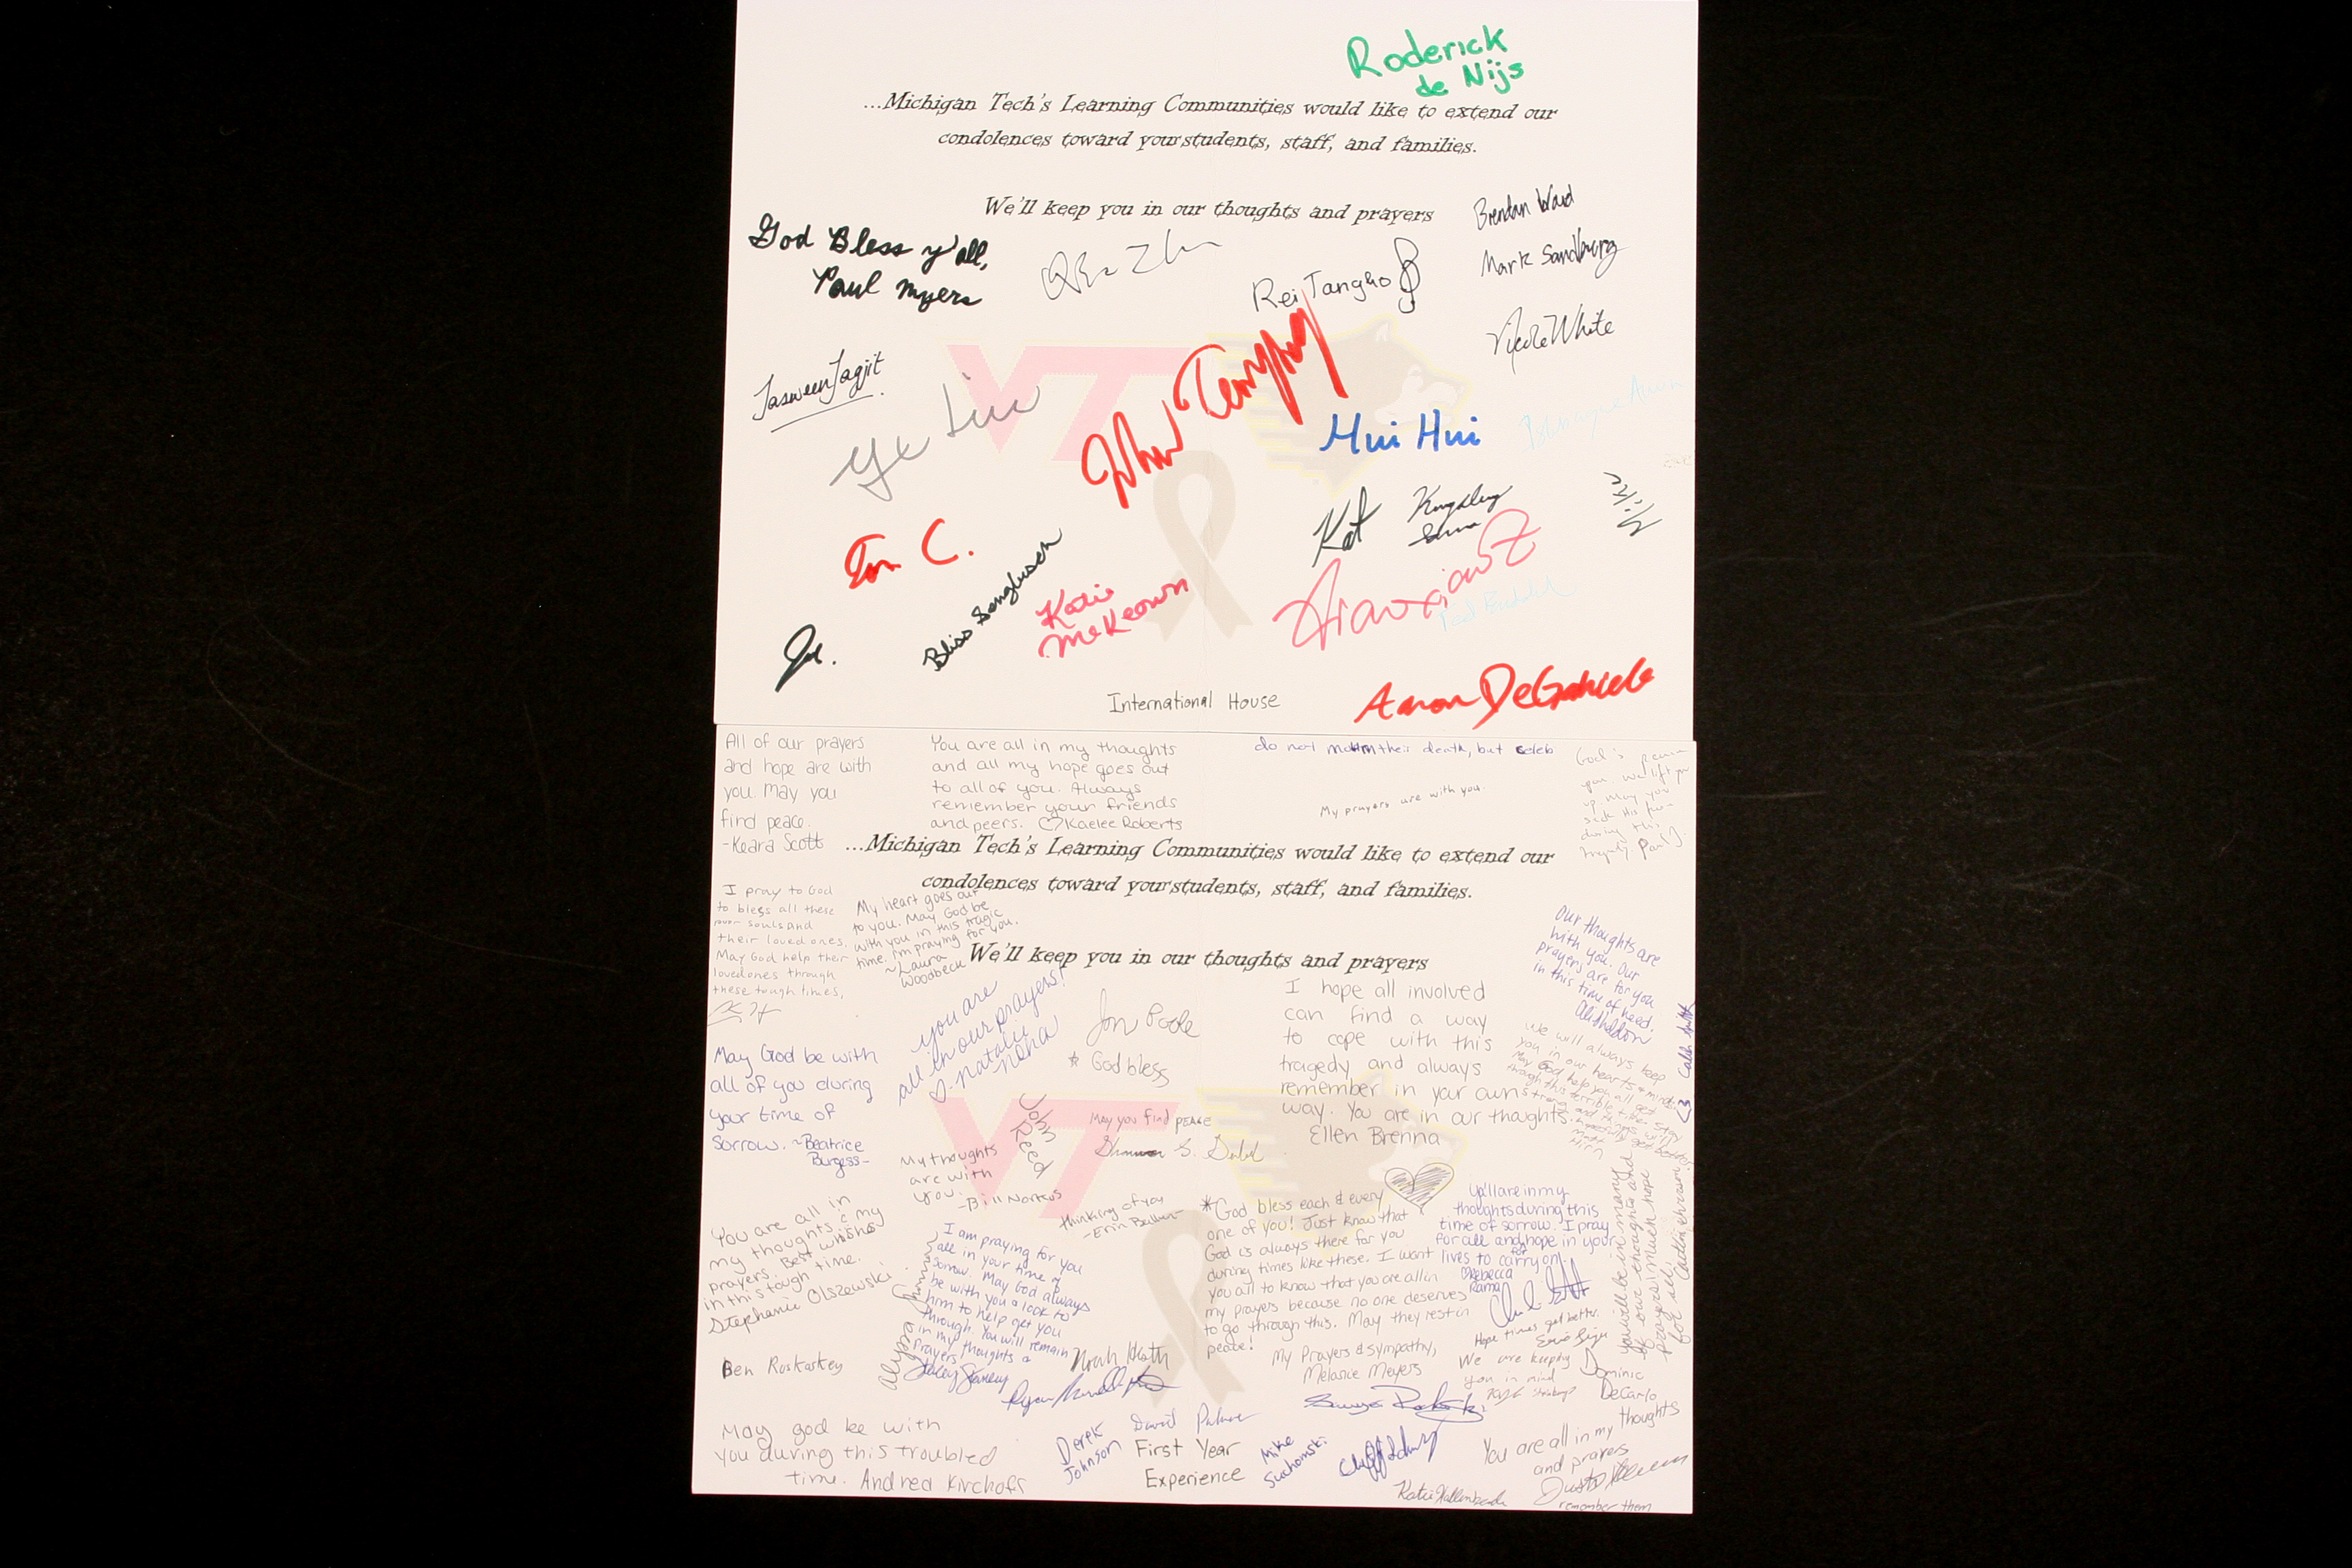 Roderick
de Nijs
...Michigan Tech's Learning Communities would like to extend our
condolences toward your students, staff, and families.
We'll keep you in our thoughts and prayers
Brendan Ward
God Bless y'all,
Paul Myers
Mark Sandburg
Rei Tangko
Nicole White
Jasween Jagjit
Ye Liu
VT
Hui Hui
Kat
Kingsley
Mike
C.
Bliss Sengbusch
Katie
McKeown
Joe.
International House
Aaron DeGabriele
All of our prayers
and hope are with
you. May you
find peace.
-Keara Scott
You are all in my thoughts
and all my hope goes out
to all of you. Always
remember your friends
and peers. Kaelee Roberts
do not mourn their death, but celeb
My prayers are with you.
...Michigan Tech's Learning Communities would like to extend our
condolences toward your students, staff, and families.
I pray to God
to bless all these
poor souls and
their loved ones.
May God help their
loved ones through
these tough times,
My heart goes out
to you. May God be
with you in this tragic
time. I'm praying for you.
~Laura
Woodbeck
We'll keep you in our thoughts and prayers
Our thoughts are
with you. Our
prayers are for you
in this time of need.
you are
all in our prayers!
Jon Poole
* God bless
I hope all involved
can find a way
to cope with this
tragedy and always
remember in your own
way. You are in our thoughts.
Ellen Brenna
We will always keep
you in our hearts & minds
May God help you all get
through this terrible time. Stay
May God be with
all of you during
your time of
sorrow. ~Beatrice
Burgess-
VT
John
Reed
May you find PEACE
My thoughts
are with
you.
-Bill Norkus
thinking of you
-Erin
You are all in
my thoughts & my
prayers. Best wishes
in this tough time.
Stephanie Olszewski
I am praying for you
all in your time of
sorrow. May God always
be with you & look to
him to help get you
through. You will remain
in my thoughts &
prayers
Alyssa
*God bless each & every
one of you! Just know that
God is always there for you
during times like these. I want
you all to know that you are all in
my prayers because no one deserves
to go through this. May they rest in
peace!
My Prayers & Sympathy,
Melanie Meyers
Ya'll are in my
thoughts during this
time of sorrow. I pray
for all and hope in your
lives to carry on.
Rebecca
Rama
you will be in many
of our thoughts and
prayers. Much hope
for all.
Hope times get better.
We are keeping
you in mind
Dominic
DeCarlo
Ben Roskoskey
Noah Heath
May god be with
you during this troubled
time. Andrea Kirchoff
Derek
Johnson
David Palmer
First Year
Experience
Mike
Suchomski
You are all in my thoughts
and prayers
remember them